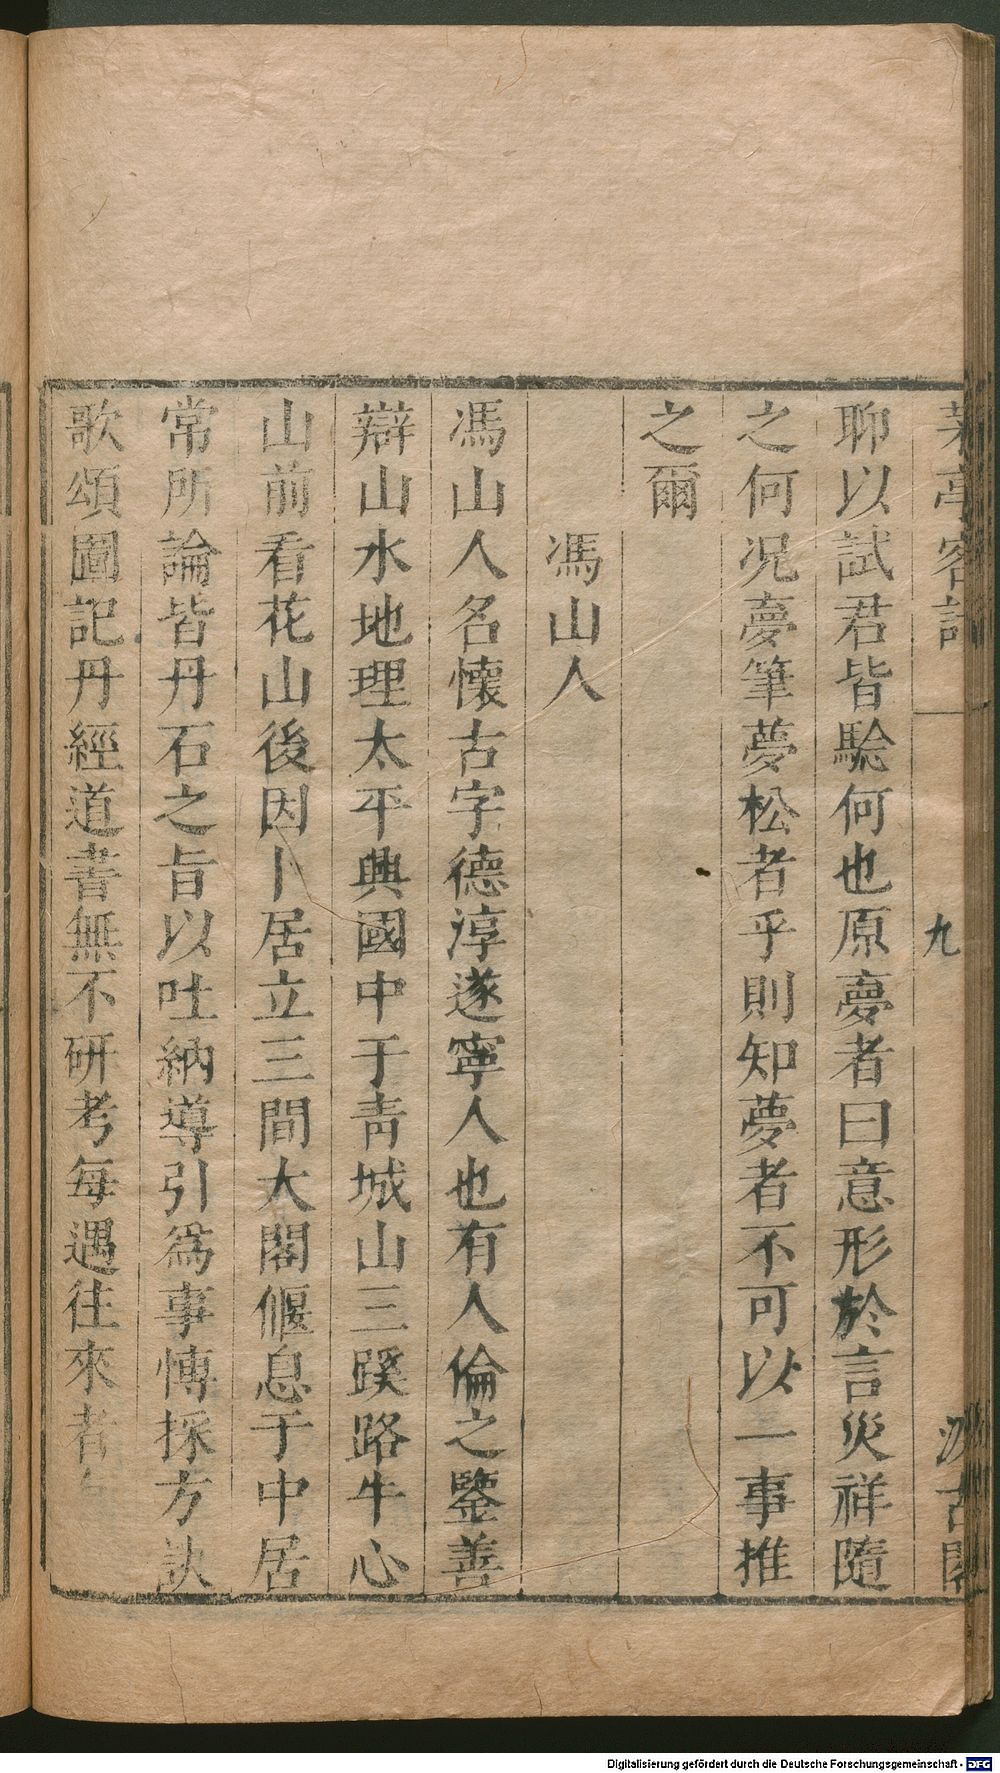 茅亭客話
九
汲古閣
聊以試君皆驗何也原夢者曰意形於言災祥隨
之何况夢筆夢松者乎則知夢者不可以一事推
之爾
馮山人
馮山人名懷古字德淳遂寧人也有人倫之鑒善
辯山水地理太平興國中于青城山三蹊路牛心
山前看花山後因卜居立三間大閣偃息于中居
常所論皆丹石之旨以吐納導引爲事慱採方訣
歌頌圖記丹經道書無不研考每遇往來者
Digitalisierung gefördert durch die Deutsche Forschungsgemeinschaft - DFG